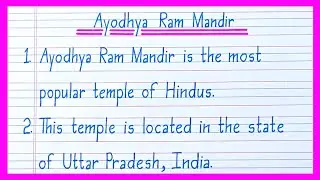 Ayodhya Ram Mandir
1. Ayodhya Ram Mandir is the most
popular temple of Hindus.
2. This temple is located in the state
of Uttar Pradesh, India.